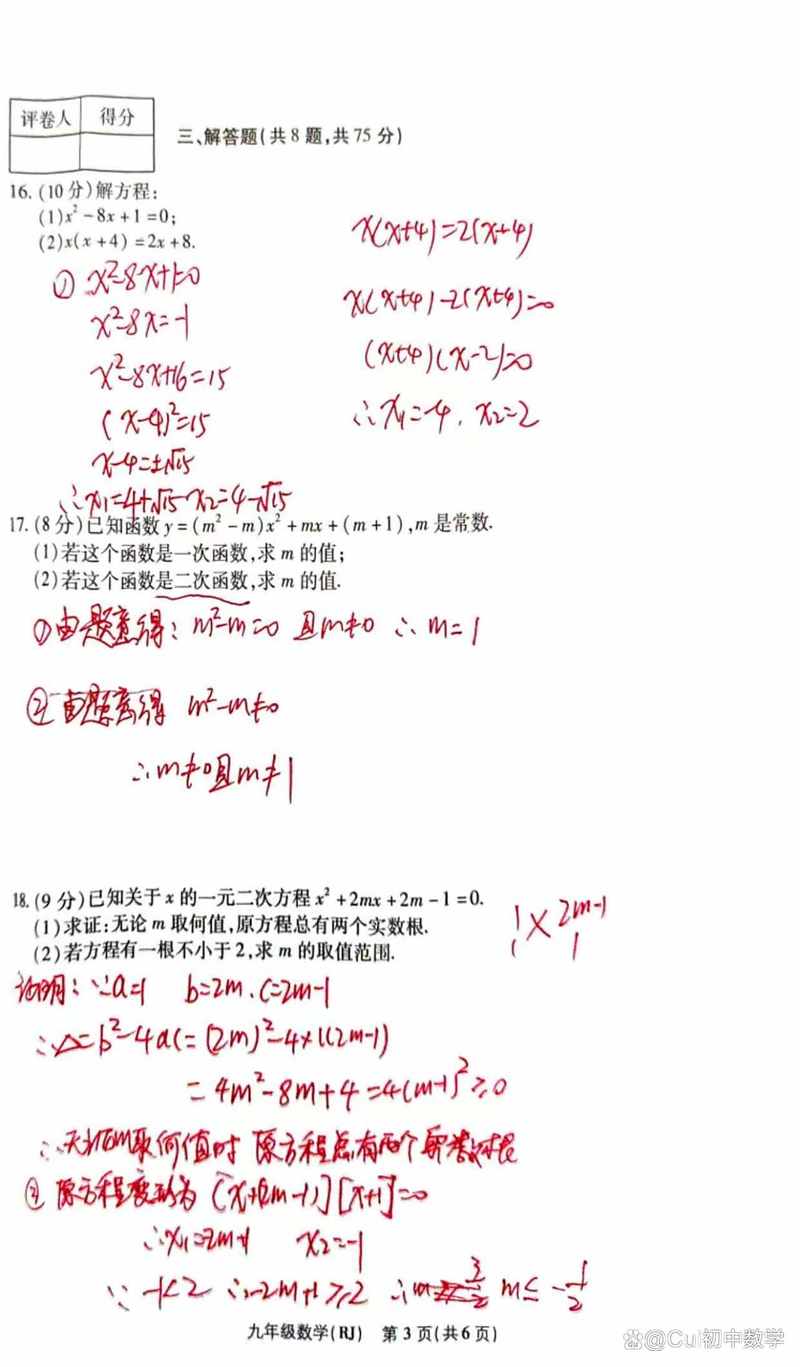 评卷人 得分
三、解答题(共8题,共75分)
16.(10分)解方程:
(1)x²-8x+1=0;
(2)x(x+4)=2x+8.
① x²-8x+1=0
x²-8x=-1
x²-8x+16=15
(x-4)²=15
x-4=±√15
∴x₁=4+√15 x₂=4-√15
x(x+4)=2(x+4)
x(x+4)-2(x+4)=0
(x+4)(x-2)=0
∴x₁=-4, x₂=2
17.(8分)已知函数y=(m²-m)x²+mx+(m+1),m是常数.
(1)若这个函数是一次函数,求m的值;
(2)若这个函数是二次函数,求m的值.
①由题意得: m²-m=0 且m≠0 ∴m=1
②由题意得 m²-m≠0
∴m≠0且m≠1
18.(9分)已知关于x的一元二次方程x²+2mx+2m-1=0.
(1)求证:无论m取何值,原方程总有两个实数根.
(2)若方程有一根不小于2,求m的取值范围.
1 2m-1
1 1
证明: ∵a=1 b=2m, c=2m-1
∴△=b²-4ac=(2m)²-4×1(2m-1)
=4m²-8m+4=4(m-1)²≥0
∴无论m取何值时 原方程总有两个实数根
② 原方程变形为 [x+(2m-1)][x+1]=0
∴x₁=2m+1 x₂=-1
∵-1<2 ∴-2m+1≥2 ∴ m≤-1/2
九年级数学(RJ) 第3页(共6页)
@Cul初中数学